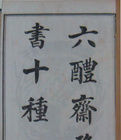 六醴齋
書十種